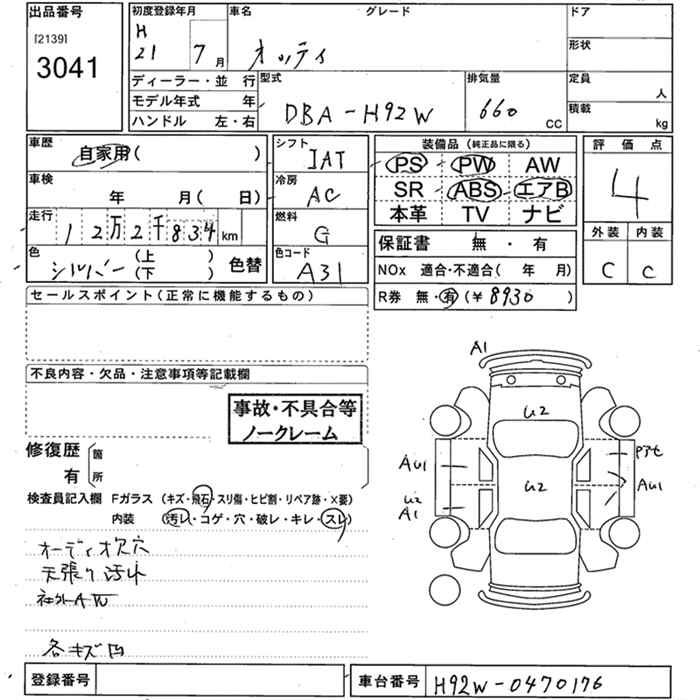 出品番号
[2139]
3041
初度登録年月
H
21 7月
車名
オッティ
グレード
ドア
形状
定員
人
積載
kg
ディーラー・並 行
モデル年式 年
ハンドル 左・右
型式
DBA-H92W
排気量
660
CC
車歴
自家用( )
車検
年 月( 日)
走行
12万2千834km
色
シルバー (上 )
(下 ) 色替
シフト
IAT
冷房
AC
燃料
G
色コード
A31
装備品(純正品に限る)
PS PW AW
SR ABS エアB
本革 TV ナビ
保証書 無・有
NOx 適合・不適合( 年 月)
R券 無・有(¥8930 )
評価点
4
外装 内装
C C
セールスポイント(正常に機能するもの)
不良内容・欠品・注意事項等記載欄
事故・不具合等
ノークレーム
修復歴
有
箇
所
検査員記入欄 Fガラス (キズ・飛石・スリ傷・ヒビ割・リペア跡・X要)
内装 (汚レ・コゲ・穴・破レ・キレ・スレ)
オーディオ欠穴
天張り汚れ
社外AW
各キズ凹
A1
U2
U2
AU1
U2
A1
Pアセ
AU1
登録番号
車台番号
H92W-0470176